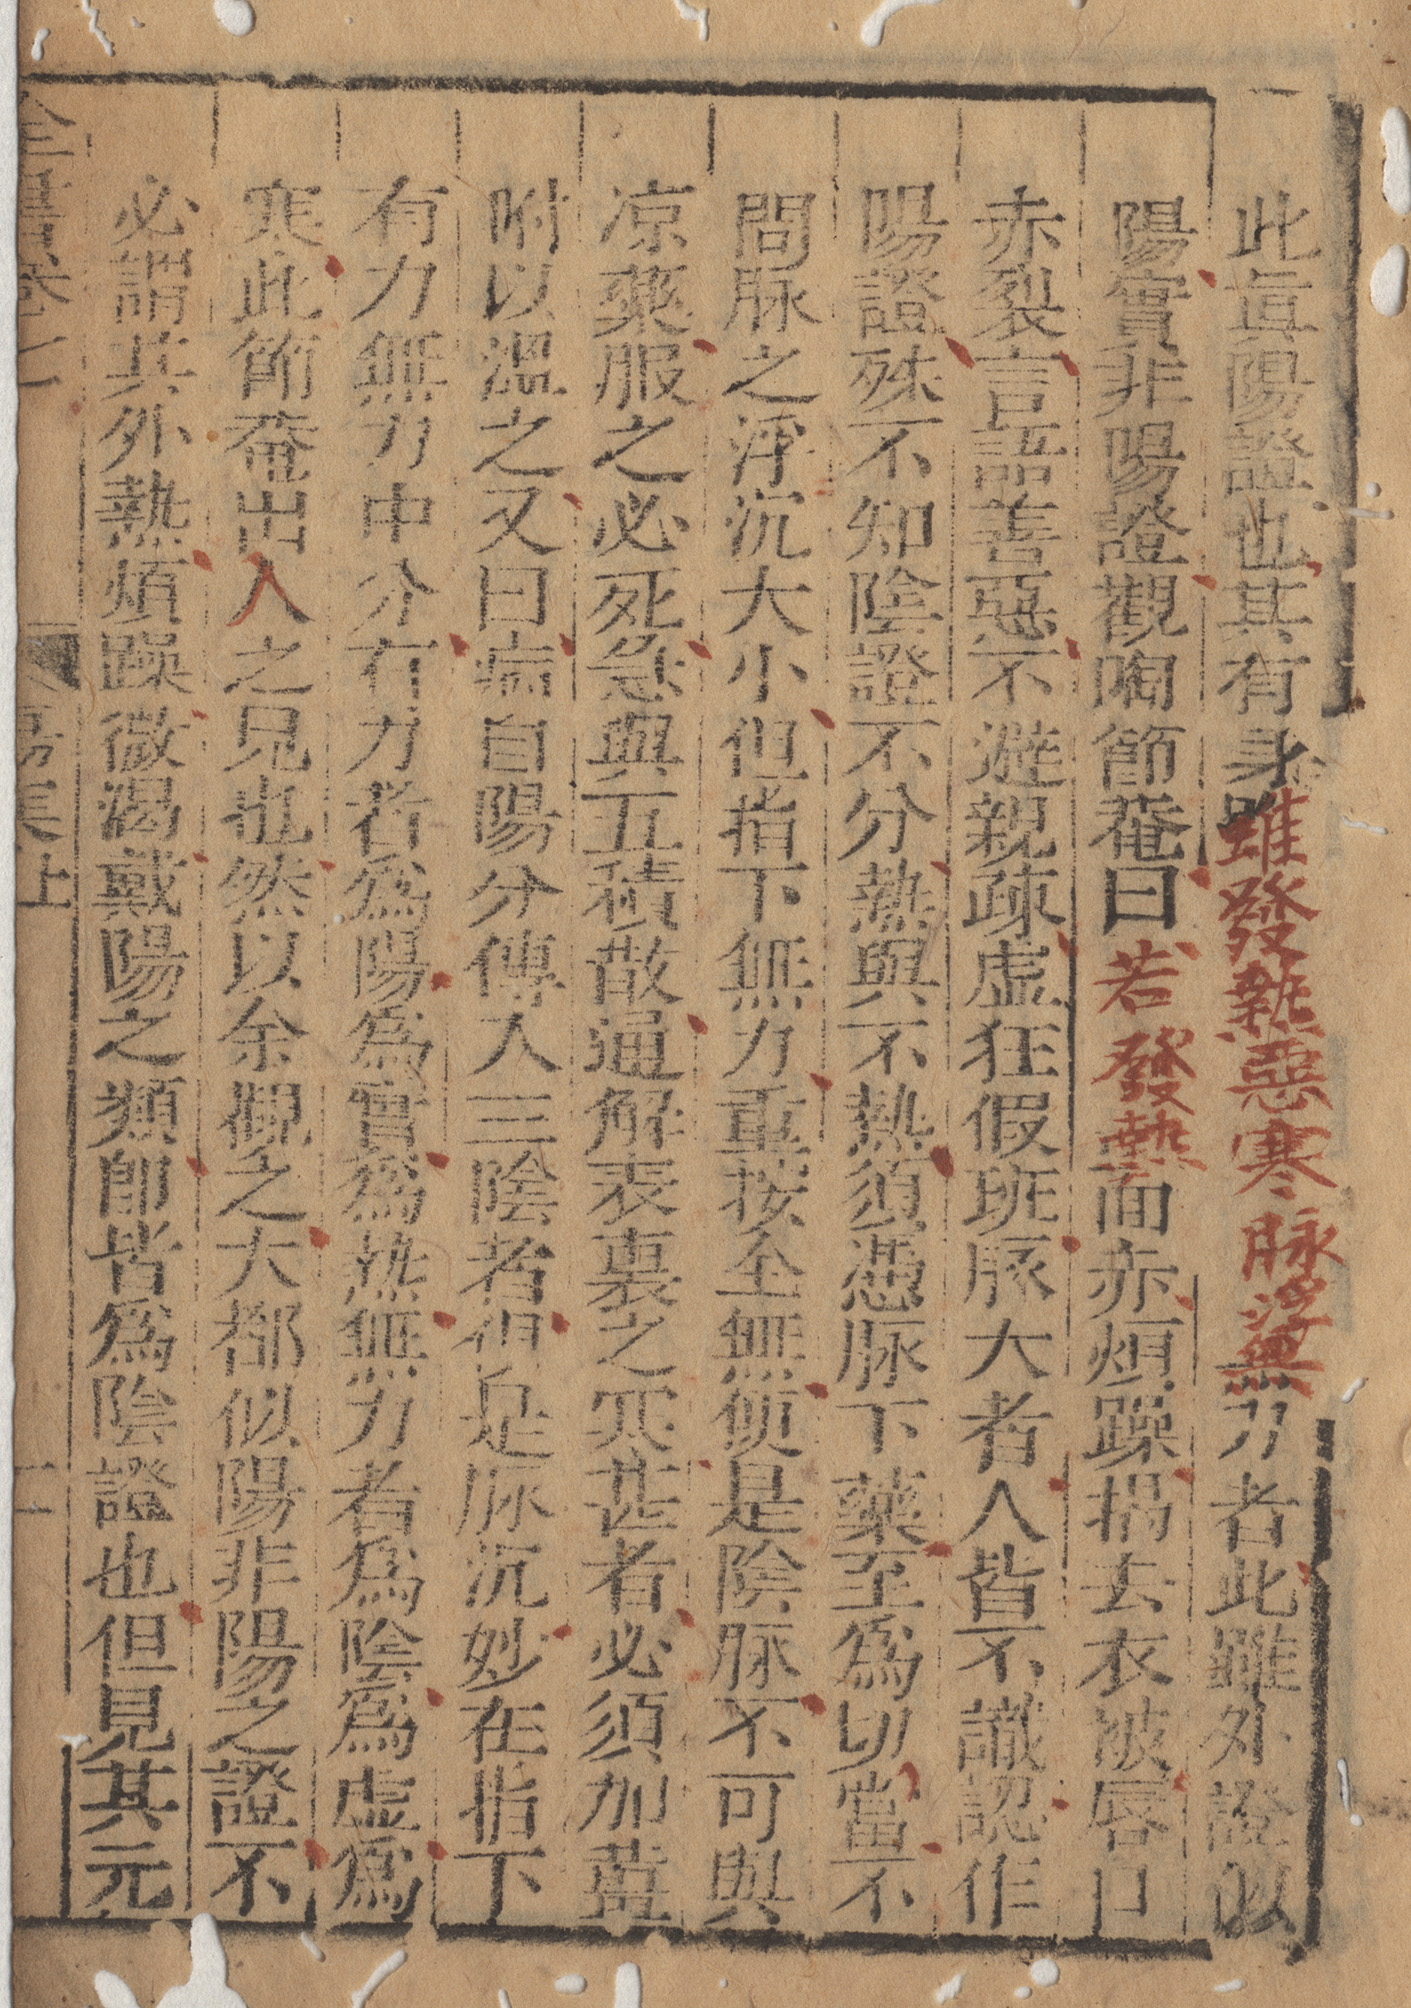 此眞陽證也其有身雖發熱惡寒脉浮無力者此雖外證似
陽實非陽證觀陶節菴曰若發熱面赤煩躁揭去衣被唇口
赤裂言語善惡不避親疎虛狂假班脉大者人皆不識認作
陽證殊不知陰證不分熱與不熱須憑脉下藥至爲切當不
問脉之浮沉大小但指下無力重按全無便是陰脉不可與
凉藥服之必死急與五積散通解表裏之寒甚者必須加薑
附以溫之又曰病自陽分傳入三陰者俱是脉沉妙在指下
有力無力中分有力者爲陽爲實爲熱無力者爲陰爲虛爲
寒此節菴出人之見也然以余觀之大都似陽非陽之證不
必謂其外熱煩躁微渴戴陽之類卽皆爲陰證也但見其元
全書卷七 集上 二